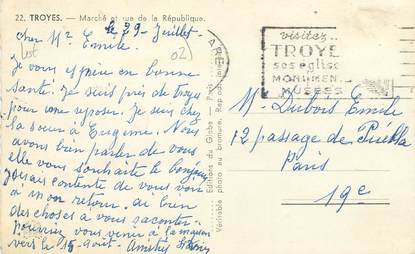 22. TROYES. — Marché et rue de la République.
le 29 Juillet
Cher Mr Emile.
Je vous espère en bonne
santé. Je suis près de Troyes
pour me reposer. Je suis chez
la soeur à Eugene. Nous
avons bien parler de vous
elle vous souhaite le bonjour
serais contente de vous voir
à mon retour. ai bien
des choses a vous raconter
pourriez vous venir à la maison
vers le 15 août. Amitiés
(02)
Editions du Globe — Paris
Véritable photo au bromure. Rep. interdite
GARE
visitez..
TROYE
ses eglise
MONUMEN
MUSEES
M. Dubois Emile
12 passage de Puebla
Paris
19e